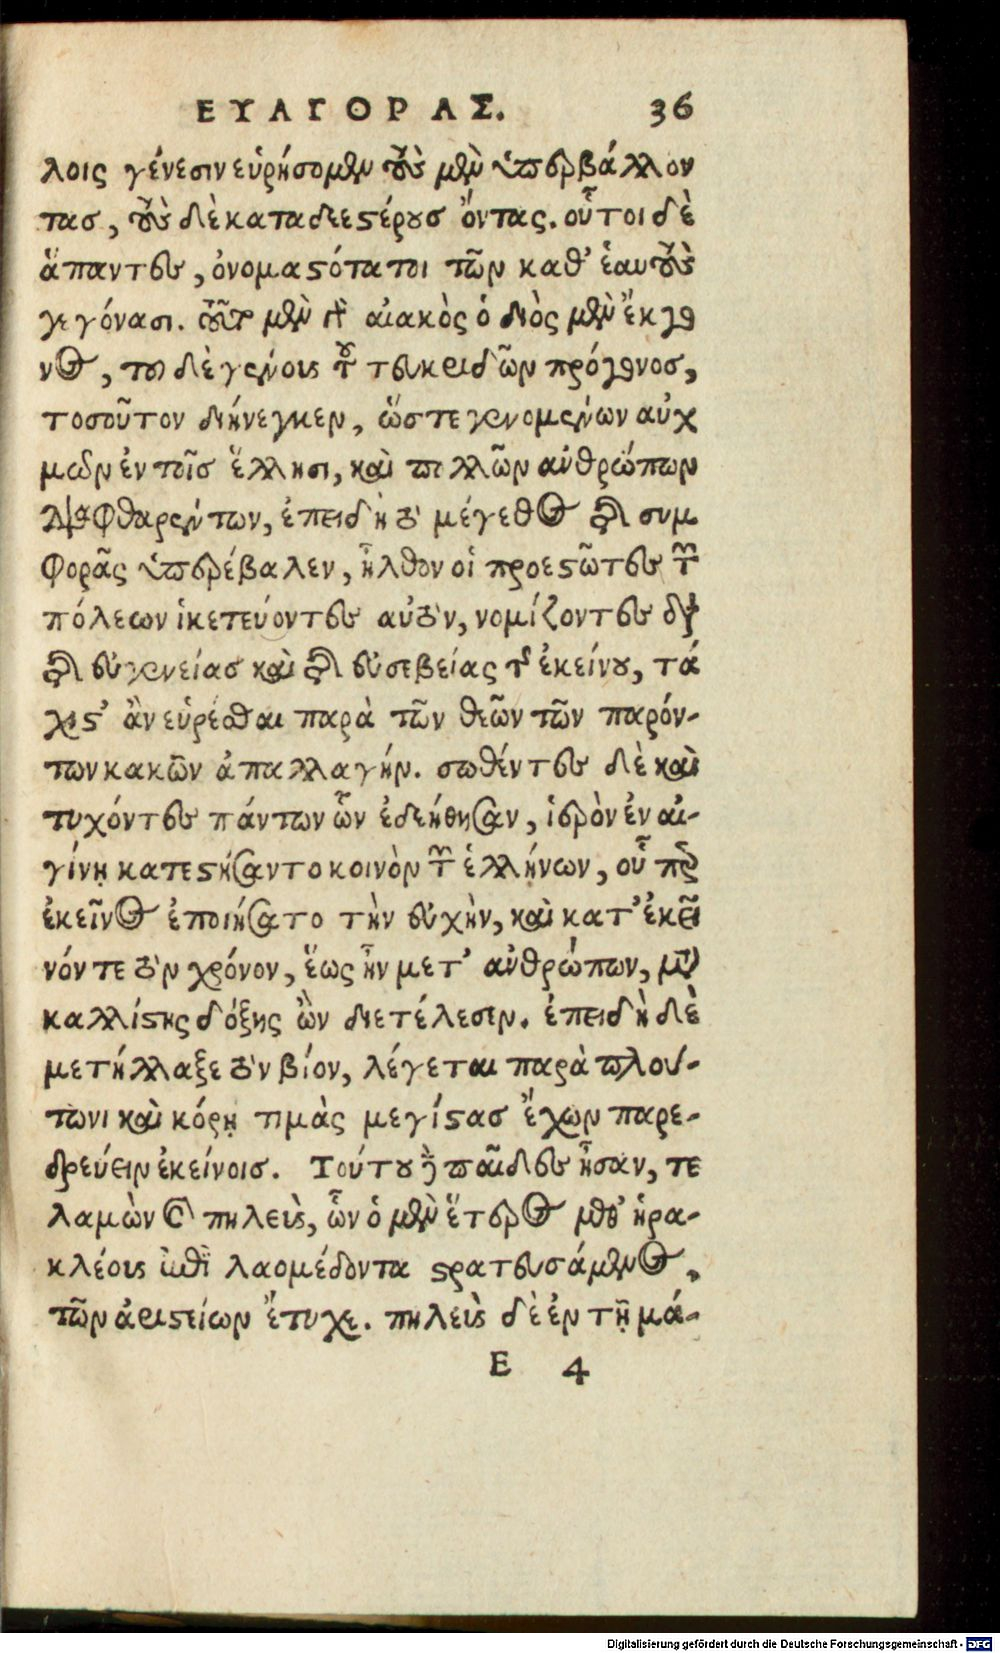 ΕΥΑΓΟΡΑΣ. 36
λοις γένεσιν εὑρήσομεν τοὺς μὲν ὑπερβάλλον
τας, τοὺς δὲ καταδεεστέρους ὄντας. οὗτοι δὲ
ἅπαντες, ὀνομαστότατοι τῶν καθ' ἑαυτοὺς
γεγόνασι. τοῦτο μὲν γὰρ αἰακὸς ὁ διὸς μὲν ἔκγο
νος, τοῦ δὲ γένους τοῦ τευκριδῶν πρόγονος,
τοσοῦτον διήνεγκεν, ὥστε γενομένων αὐχ
μῶν ἐν τοῖς ἕλλησι, καὶ πολλῶν ἀνθρώπων
διαφθαρέντων, ἐπειδὴ τὸ μέγεθος τῆς συμ
φορᾶς ὑπερέβαλεν, ἦλθον οἱ προεστῶτες τῶν
πόλεων ἱκετεύοντες αὐτὸν, νομίζοντες διὰ
τῆς εὐγενείας καὶ τῆς εὐσεβείας τῆς ἐκείνου, τά
χιστ' ἂν εὑρέσθαι παρὰ τῶν θεῶν τῶν παρόν-
των κακῶν ἀπαλλαγήν. σωθέντες δὲ καὶ
τυχόντες πάντων ὧν ἐδεήθησαν, ἱερὸν ἐν αἰ-
γίνῃ κατεστήσαντο κοινὸν τῶν ἑλλήνων, οὗ περ
ἐκεῖνος ἐποιήσατο τὴν εὐχὴν, καὶ κατ' ἐκεῖ
νόν τε τὸν χρόνον, ἕως ἦν μετ' ἀνθρώπων, μετὰ
καλλίστης δόξης ὢν διετέλεσεν. ἐπειδὴ δὲ
μετήλλαξε τὸν βίον, λέγεται παρὰ πλού-
τωνι καὶ κόρῃ τιμὰς μεγίστας ἔχων παρε-
δρεύειν ἐκείνοις. Τούτου δὲ παῖδες ἦσαν, τε
λαμὼν καὶ πηλεὺς, ὧν ὁ μὲν ἕτερος μεθ' ἡρα-
κλέους ἐπὶ λαομέδοντα στρατευσάμενος,
τῶν ἀριστείων ἔτυχε. πηλεὺς δὲ ἐν τῇ μά-
E 4
Digitalisierung gefördert durch die Deutsche Forschungsgemeinschaft - DFG